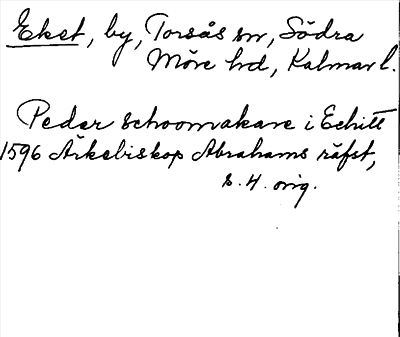 Eket, by, Torsås sn, Södra
Möre hd, Kalmar l.
Peder schoomakare i Echitt
1596 Ärkebiskop Abrahams räfst,
s. 4. orig.